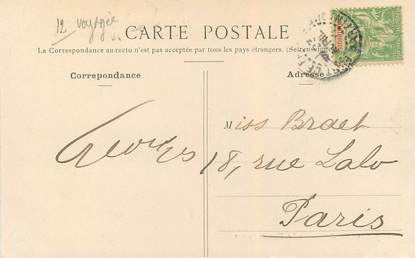 12 voyagée
CARTE POSTALE
La Correspondance au recto n'est pas acceptée par tous les pays étrangers. (Se
Correpondance
Adresse
Miss Braet
Georges
18, rue Lalo
Paris